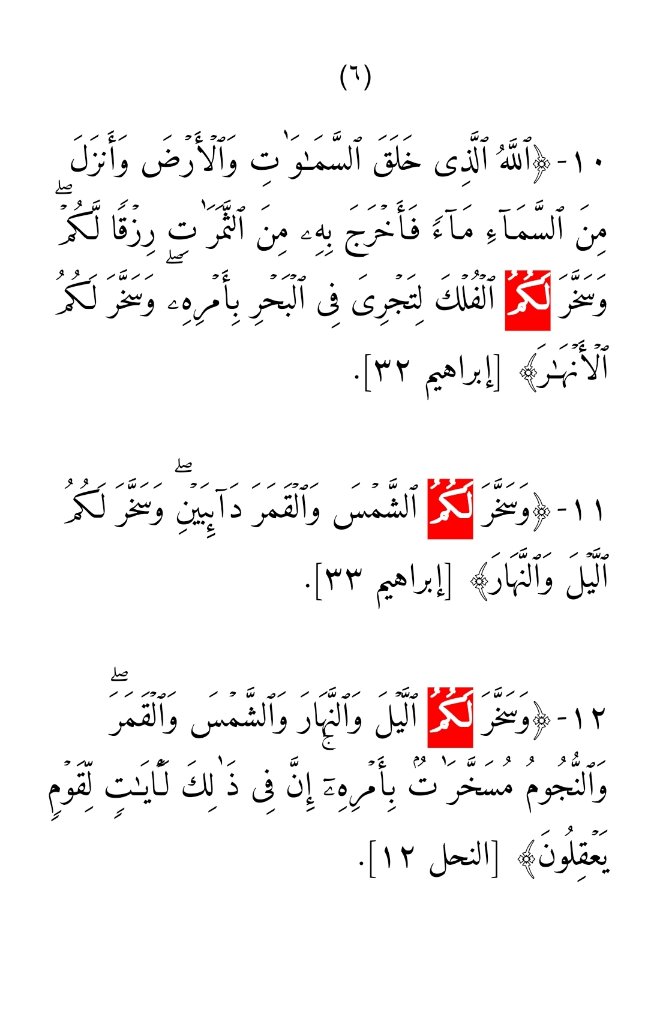 (٦)
١٠- ﴿ٱللَّهُ ٱلَّذِى خَلَقَ ٱلسَّمَـٰوَٰتِ وَٱلْأَرْضَ وَأَنزَلَ
مِنَ ٱلسَّمَآءِ مَآءً فَأَخْرَجَ بِهِۦ مِنَ ٱلثَّمَرَٰتِ رِزْقًا لَّكُمْ ۖ
وَسَخَّرَ لَكُمُ ٱلْفُلْكَ لِتَجْرِىَ فِى ٱلْبَحْرِ بِأَمْرِهِۦ ۖ وَسَخَّرَ لَكُمُ
ٱلْأَنْهَـٰرَ﴾ [إبراهيم ٣٢].
١١- ﴿وَسَخَّرَ لَكُمُ ٱلشَّمْسَ وَٱلْقَمَرَ دَآئِبَيْنِ ۖ وَسَخَّرَ لَكُمُ
ٱلَّيْلَ وَٱلنَّهَارَ﴾ [إبراهيم ٣٣].
١٢- ﴿وَسَخَّرَ لَكُمُ ٱلَّيْلَ وَٱلنَّهَارَ وَٱلشَّمْسَ وَٱلْقَمَرَ ۖ
وَٱلنُّجُومُ مُسَخَّرَٰتٌۢ بِأَمْرِهِۦٓ ۗ إِنَّ فِى ذَٰلِكَ لَـَٔايَـٰتٍ لِّقَوْمٍ
يَعْقِلُونَ﴾ [النحل ١٢].